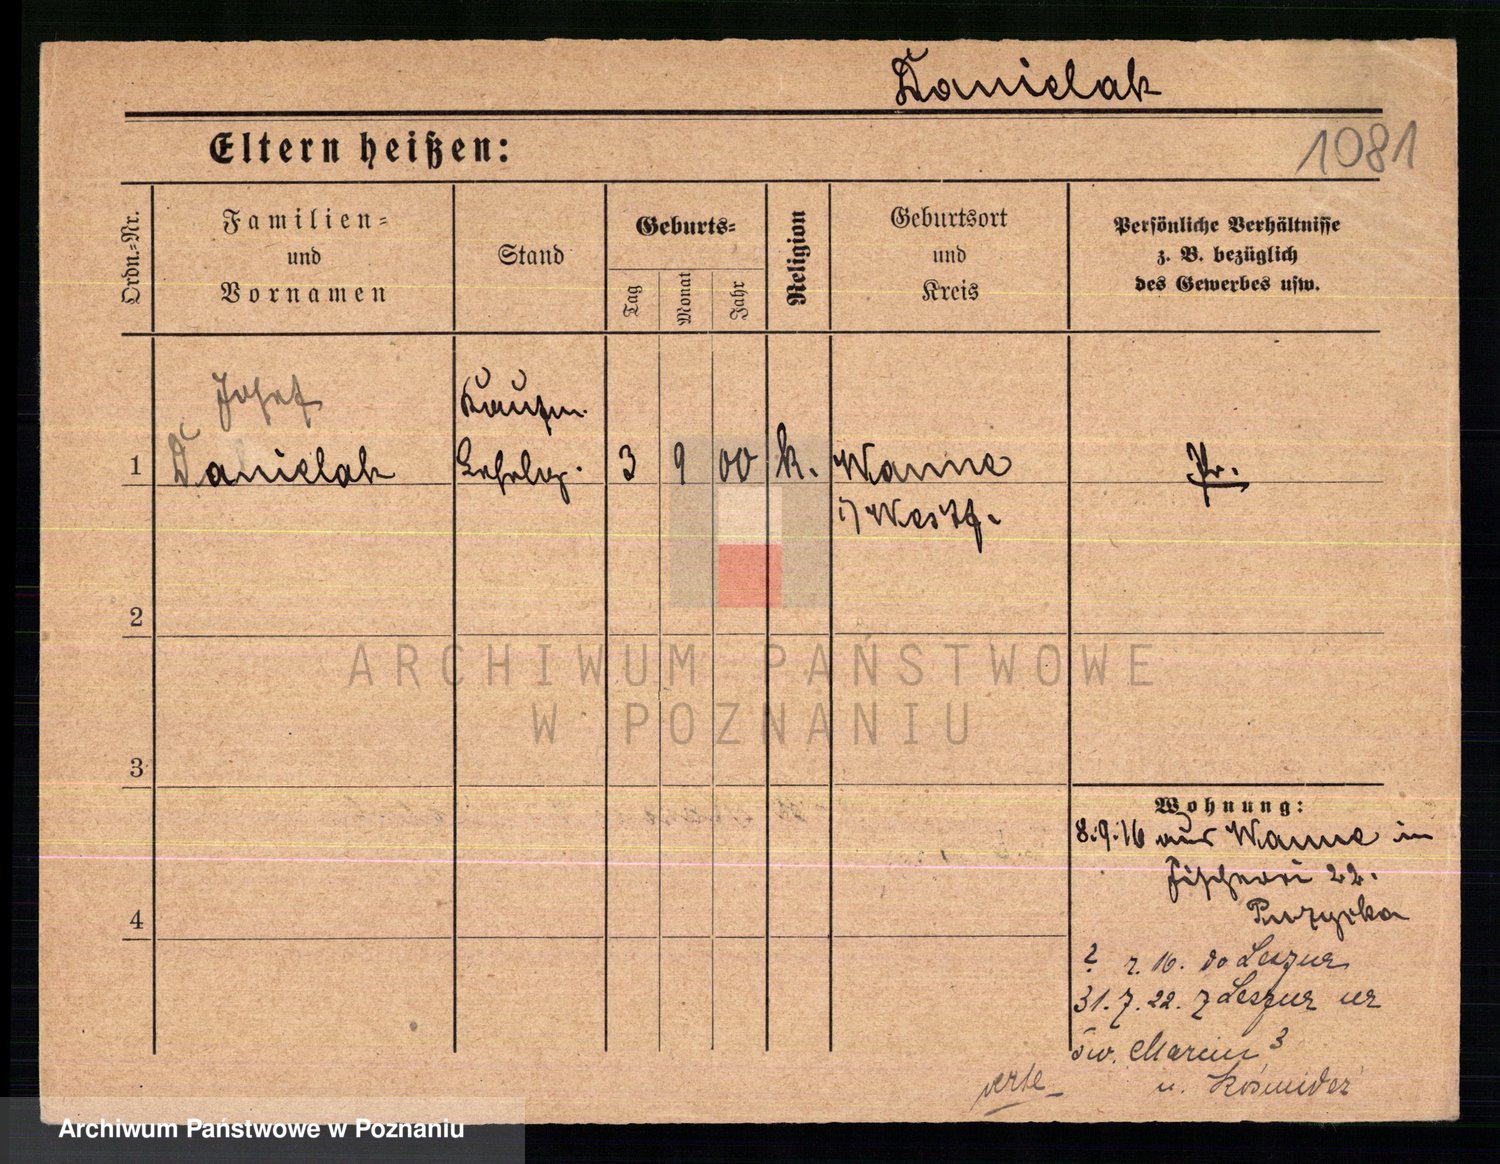 Danielak
1081
Eltern heißen:
Ordn.-Nr.
Familien-
und
Vornamen
Stand
Geburts-
Tag
Monat
Jahr
Religion
Geburtsort
und
Kreis
Persönliche Verhältnisse
z. B. bezüglich
des Gewerbes usw.
Josef
Kaufm.
1 Danielak Lehrlg. 3 9 00 k. Wanne Pr.
i/ Westf.
2
ARCHIWUM PAŃSTWOWE
W POZNANIU
3
Wohnung:
8.9.16 aus Wanne in
Fischerei 22.
4
? r. 16. do
31.7.22. z
św. Marcin 3
u. Kośmider
verte
Archiwum Państwowe w Poznaniu